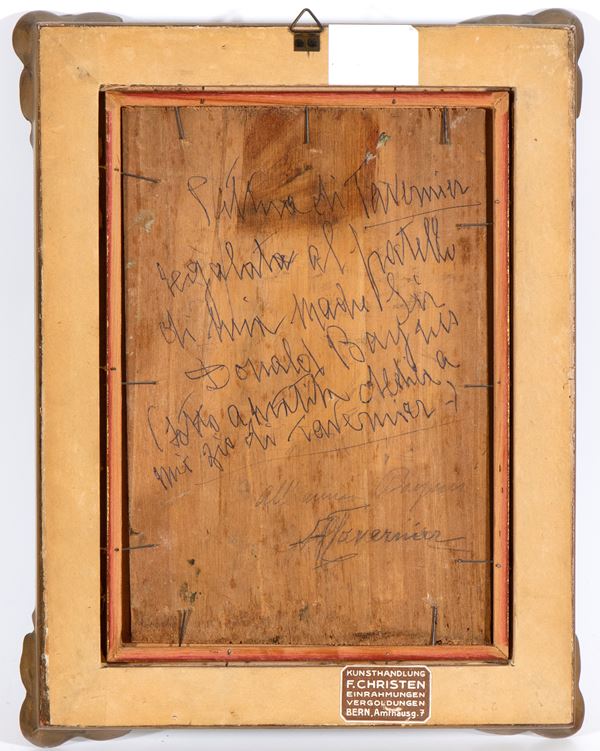 Pittura di Tavernier
regalata al fratello
di mia madre Sir
Donald
(
mio zio di Tavernier)
All'amico
Tavernier
KUNSTHANDLUNG
F. CHRISTEN
EINRAHMUNGEN
VERGOLDUNGEN
BERN, Amthausg. 7